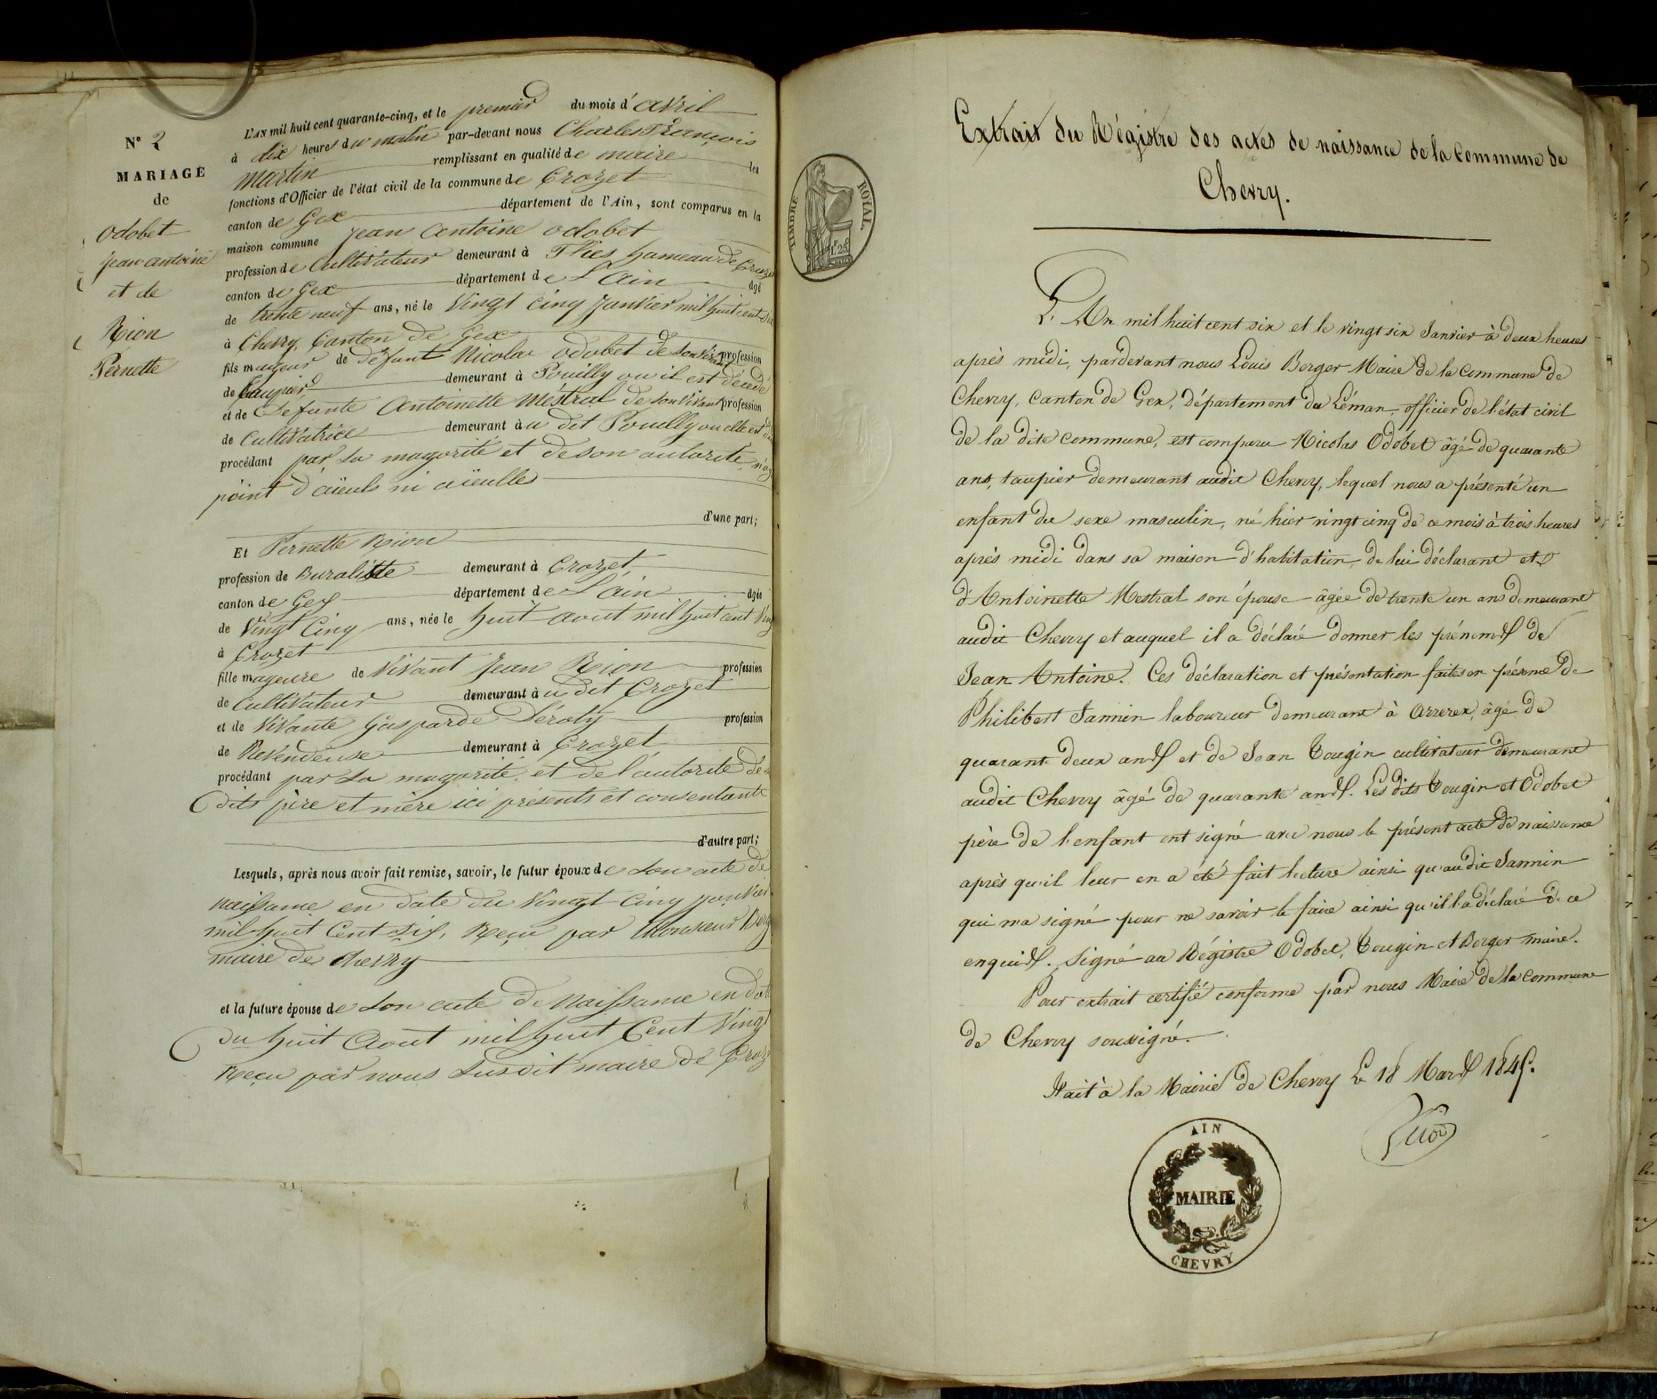 N° 2
MARIAGE
de
Odobet
jean antoine
et de
Rion
Pernette
L'AN mil huit cent quarante-cinq, et le premier du mois d'avril
à dix heures du matin par-devant nous Charles François
Martin remplissant en qualité de maire les
fonctions d'Officier de l'état civil de la commune de Crozet
canton de Gex département de l'Ain, sont comparus en la
maison commune jean antoine odobet
profession de Cultivateur demeurant à hameau de Croz
canton de Gex département de L'Ain âgé
de trente neuf ans, né le Vingt Cinq janvier mil huit cent six
à Chevry, Canton de Gex
fils majeur de défunt Nicolas Odobet de son vivant profession
de taupier demeurant à Pouilly ou il est décédé
et de defunte Antoinette Mestral de son vivant profession
de Cultivatrice demeurant à u dit Pouilly ou elle est
procédant par sa majorité et de son autorité n'ay
point d'aïeuls ni aïeulles
d'une part;
Et Pernette Rion
profession de Buraliste demeurant à Crozet
canton de Gex département de L'ain âgée
de Vingt Cinq ans, née le huit aout mil huit cent Ving
à Crozet
fille majeure de Vivant Jean Rion profession
de Cultivateur demeurant à u dit Crozet
et de Vivante Gasparde profession
de Revendeuse demeurant à Crozet
procédant par sa majorité et de l'autorité de
dits père et mère ici présents et consentants
d'autre part;
Lesquels, après nous avoir fait remise, savoir, le futur époux de son acte de
naissance en date du Vingt Cinq janvier
mil huit Cent Six, Reçu par Monsieur Berg
maire de Chevry
et la future épouse de son acte de Naissance en date
du huit Aout mil huit Cent Vingt
Reçu par nous susdit maire de Croz
TIMBRE ROYAL
1F 25
Extrait du Régistre des actes de naissance de la Commune de
Chevry.
L'An mil huit cent six et le vingt six Janvier à deux heures
après midi, pardevant nous Louis Berger Maire de la Commune de
Chevry, Canton de Gex, Département du Léman, officier de l'état civil
de la dite commune, est comparu Nicolas Odobet âgé de quarante
ans, taupier demeurant audit Chevry, lequel nous a présenté un
enfant du sexe masculin, né hier vingt cinq de ce mois à trois heures
après midi dans sa maison d'habitation, de lui déclarant et
d'Antoinette Mestral son épouse âgée de trente un ans demeurant
audit Chevry et auquel il a déclaré donner les prénoms de
Jean Antoine. Ces déclaration et présentation faites en présence de
Philibert Jannin laboureur demeurant à ornex, âgé de
quarante deux ans et de Jean Tougin cultivateur demeurant
audit Chevry âgé de quarante ans. Les dits Tougin et Odobet
père de l'enfant ont signé avec nous le présent acte de naissance
après qu'il leur en a été fait lecture ainsi qu'audit Jannin
qui n'a signé pour ne savoir le faire ainsi qu'il l'a déclaré de ce
enquis. Signé au Régistre Odobet, Tougin et Berger maire.
Pour extrait certifié conforme par nous Maire de la commune
de Chevry soussigné.
Fait à la Mairie de Chevry Le 18 Mars 1845.
AIN
MAIRIE
CHEVRY